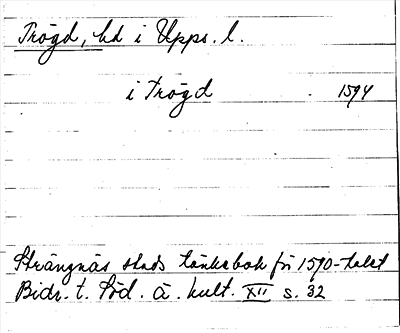 Trögd, hd i Upps. l.
i trögd . 1594
Strängnäs stads tänkebok för 1590-talet
Bidr. t. Söd. ä. kult. XII s. 32